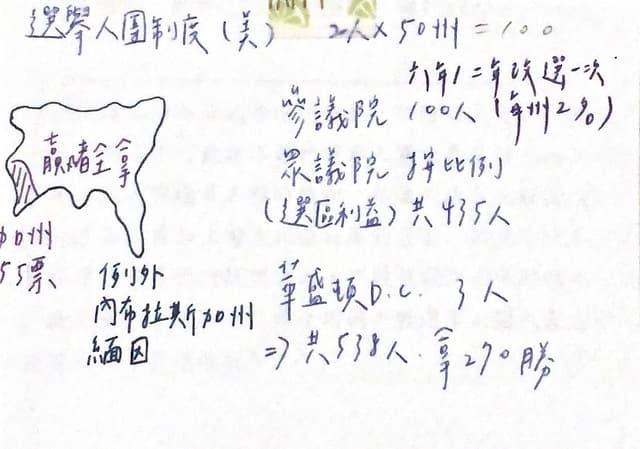 選舉人團制度（美） 2人×50州=100
六年/二年改選一次
參議院 100人（每州2名）
贏者全拿
眾議院 按比例
（選區利益）共435人
加州
55票
例外
內布拉斯加州
緬因
華盛頓D.C. 3人
⇒共538人.拿270勝